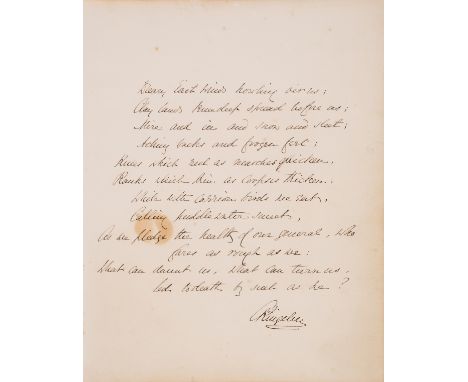 Dreary East winds howling o'er us;
Clay lands knee deep spread before us;
Mire and ice and snow and sleet;
Aching backs and frozen feet;
Knees which reel as marches quicken,
Ranks which thin as corpses thicken;
While with carrion birds we eat,
Calling puddle water sweet,
As we pledge the health of our general, who
fares as rough as we:
What can daunt us, what can turn us,
led to death by such as he?
CKingsley